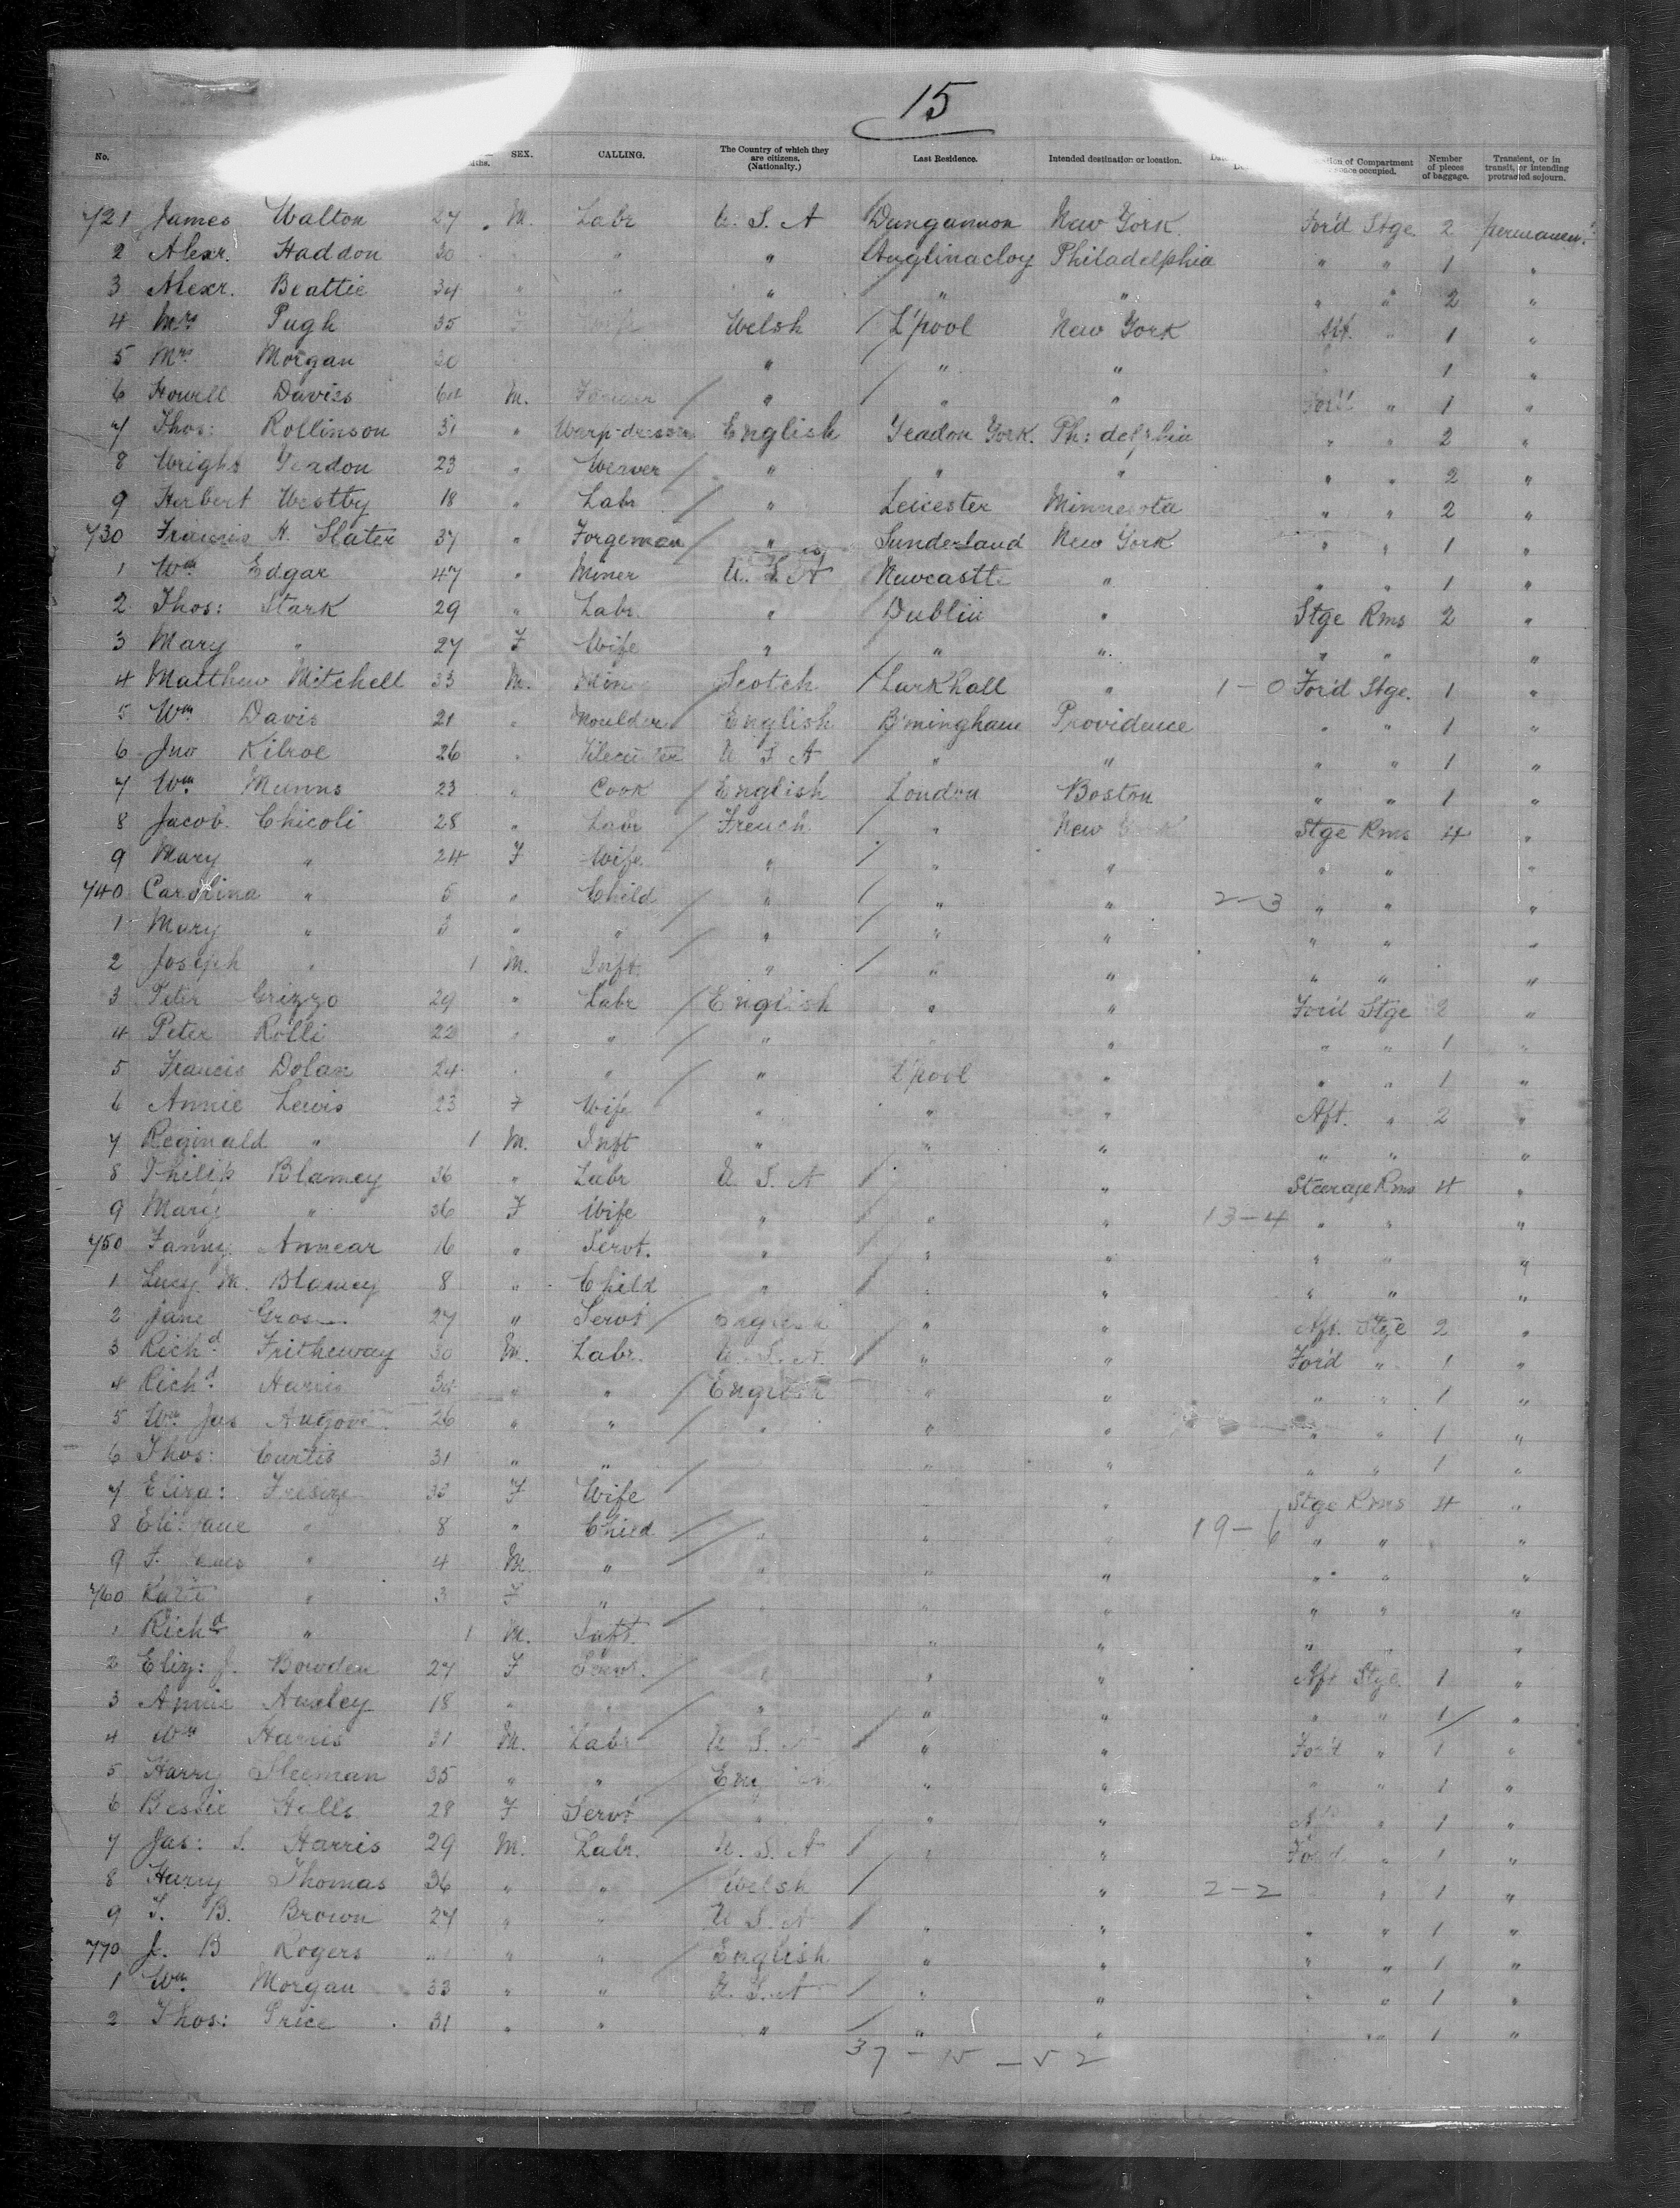 15
No. SEX. CALLING. The Country of which they are citizens. (Nationality.) Last Residence. Intended destination or location. Compartment occupied. Number of pieces of baggage. Transient, or in transit, or intending protracted sojourn.
721 James Walton 27 M. Labr U. S. A Dungannon New York. For'd Stge 2 permanent
2 Alexr. Haddon 30 " " Auglinacloy Philadelphia " " 1 "
3 Alexr. Beattie 34 " " " " " " " 2 "
4 Mrs Pugh 35 F Wife Welsh L'pool New York Aft. " 1 "
5 Mrs Morgan 20 " " " 1 "
6 Howell Davies M. " " " For'd " 1 "
7 Thos: Rollinson 31 " Warp-dresser English Yeadon York. Ph: delphia " " 2 "
8 Wright Yeadon 23 " Weaver " " " " " 2 "
9 Herbert Westby 18 " Labr " Leicester Minnesota " " 2 "
730 Francis H. Slater 37 " Forgeman " Sunderland New York " " 1 "
1 Wm Edgar 47 " Miner U. S. A Newcastle " " " 1 "
2 Thos: Stark 29 " Labr. " Dublin " Stge Rms 2 "
3 Mary " 27 F Wife " " " " " "
4 Matthew Mitchell 33 M. Min Scotch Larkhall " 1-0 For'd Stge. 1 "
5 Wm Davis 21 " Moulder English B'mingham Providence " " 1 "
6 Jno Kilroe 26 " U S A " " " " 1 "
7 Wm. Munns 23 " Cook English London Boston " " 1 "
8 Jacob Chicoli 28 " Labr French " New York Stge Rms 4 "
9 Mary " 24 F Wife " " " " " "
740 Carolina " 5 " Child " " " 2-3 " " "
1 Mary " 3 " " " " " " " "
2 Joseph " 1 M. Inft " " " " " "
3 Peter Grizzo 29 " Labr English " " For'd Stge 2 "
4 Peter Rolli 22 " " " " " " " 1 "
5 Francis Dolan 24 " " " L'pool " " " 1 "
6 Annie Lewis 23 F Wife " " " Aft. " 2 "
7 Reginald " 1 M. Inft " " " " " "
8 Philip Blamey 36 " Labr U. S. A " Steerage Rms 4 "
9 Mary " 36 F Wife " " " 13-4 " " "
750 Fanny Annear 16 " Servt. " " " " " "
1 Lucy M. Blamey 8 " Child " " " " " "
2 Jane Gros 27 " Servt English " " Aft. Stge 2 "
3 Richd Tritheway 30 M. Labr. U. S. A " " For'd " 1 "
4 Richd Harris 34 " " English " " " " 1 "
5 Wm Jas 26 " " " " " " " 1 "
6 Thos: Curtis 31 " " " " " " 1 "
7 Eliza: 33 F Wife " Stge Rms 4 "
8 Eli: Jane " 8 " Child " " " 19-6 " " "
9 " 4 M. " " " " " " "
760 Katie " 3 F " " " " " " "
1 Richd " 1 M. Inft. " " " "
2 Eliz: J. Bowden 27 F Servt. " " " Aft Stge. 1 "
3 Annie Huxley 18 " " " " " " " 1 "
4 Wm Harris 31 M. Labr U. S. A " " For'd " 1 "
5 Harry Sleeman 35 " " English " " " " 1 "
6 Bessie Hills 28 F Servt " " " " 1 "
7 Jas: S. Harris 29 M. Labr. U. S. A " " For'd " 1 "
8 Harry Thomas 36 " " Welsh " 2-2 " 1 "
9 T. B. Brown 27 " " U S. A " " " " 1 "
770 J. B Rogers " " English " " " " 1 "
1 Wm. Morgan 33 " " U. S. A " " " " 1 "
2 Thos: Price 31 " " " " " " 1 "
37 - 15 - 52